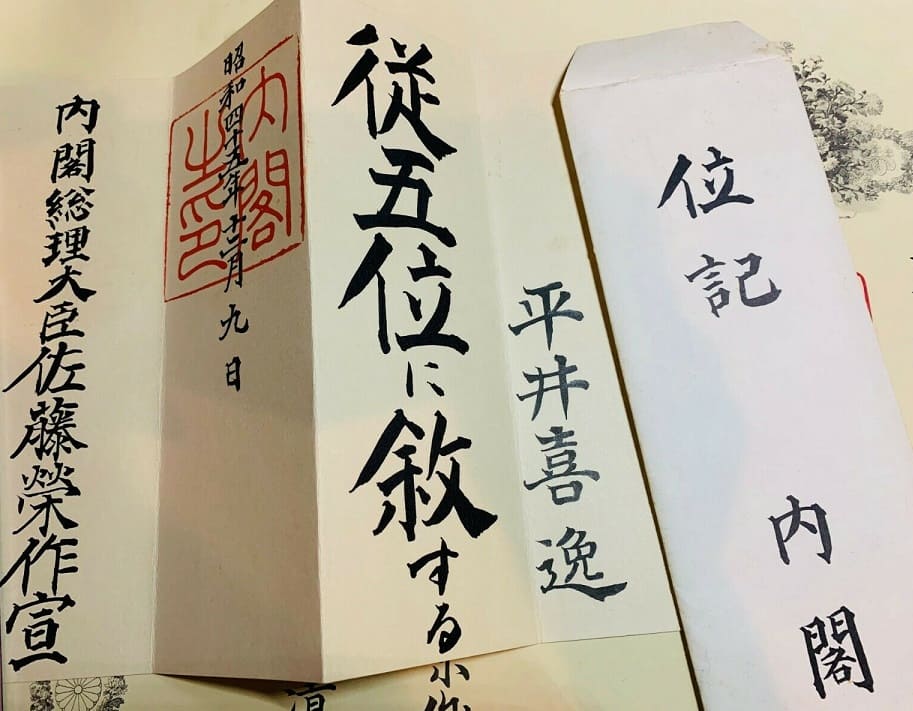 平井喜逸
従五位に敘する
昭和四十五年十二月九日
内閣之印
内閣総理大臣佐藤榮作宣
位記
内閣